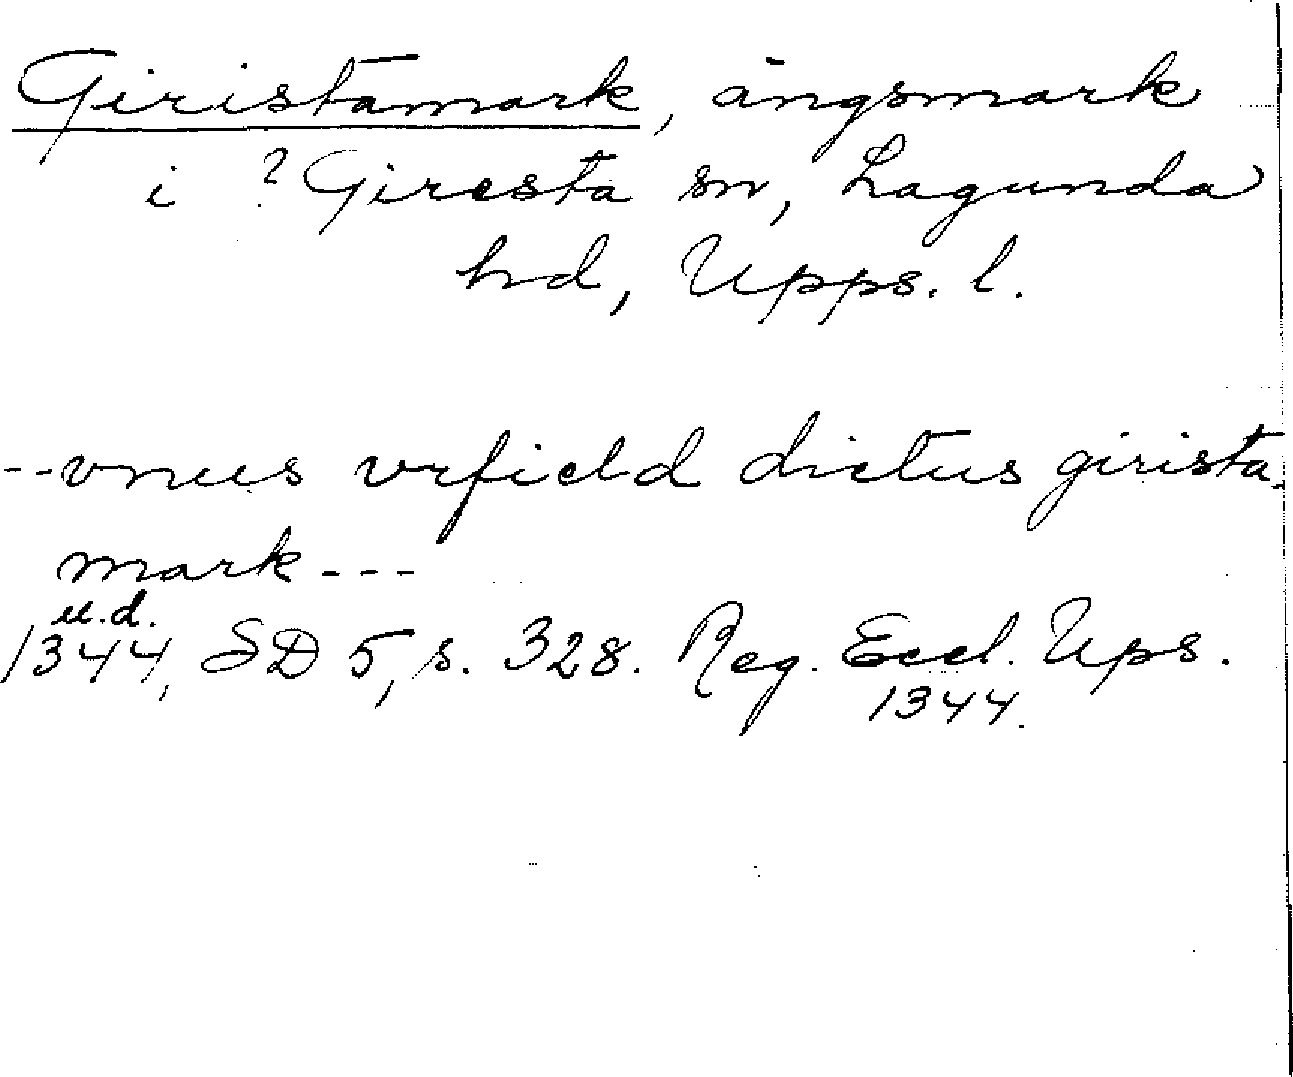 Giristamark, ängsmark
i ? Giresta sn, Lagunda
hd, Upps. l.
--vnus vrfield dictus girista-
mark---
u.d.
1344, SD 5, s. 328. Reg. Eccl. Ups.
1344.